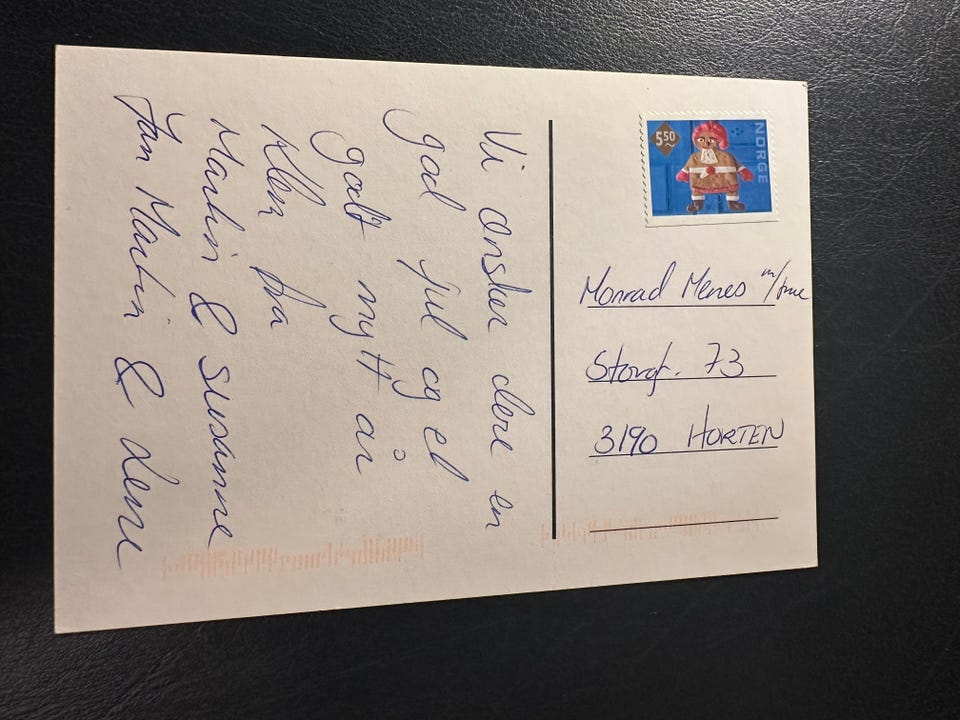 Vi ønsker dere en
god jul og et
godt nytt år
Klem fra
Martin & Susanne
Jan Martin & Lene
NORGE
550
Monrad Menes m/frue
Storgt. 73
3190 HORTEN